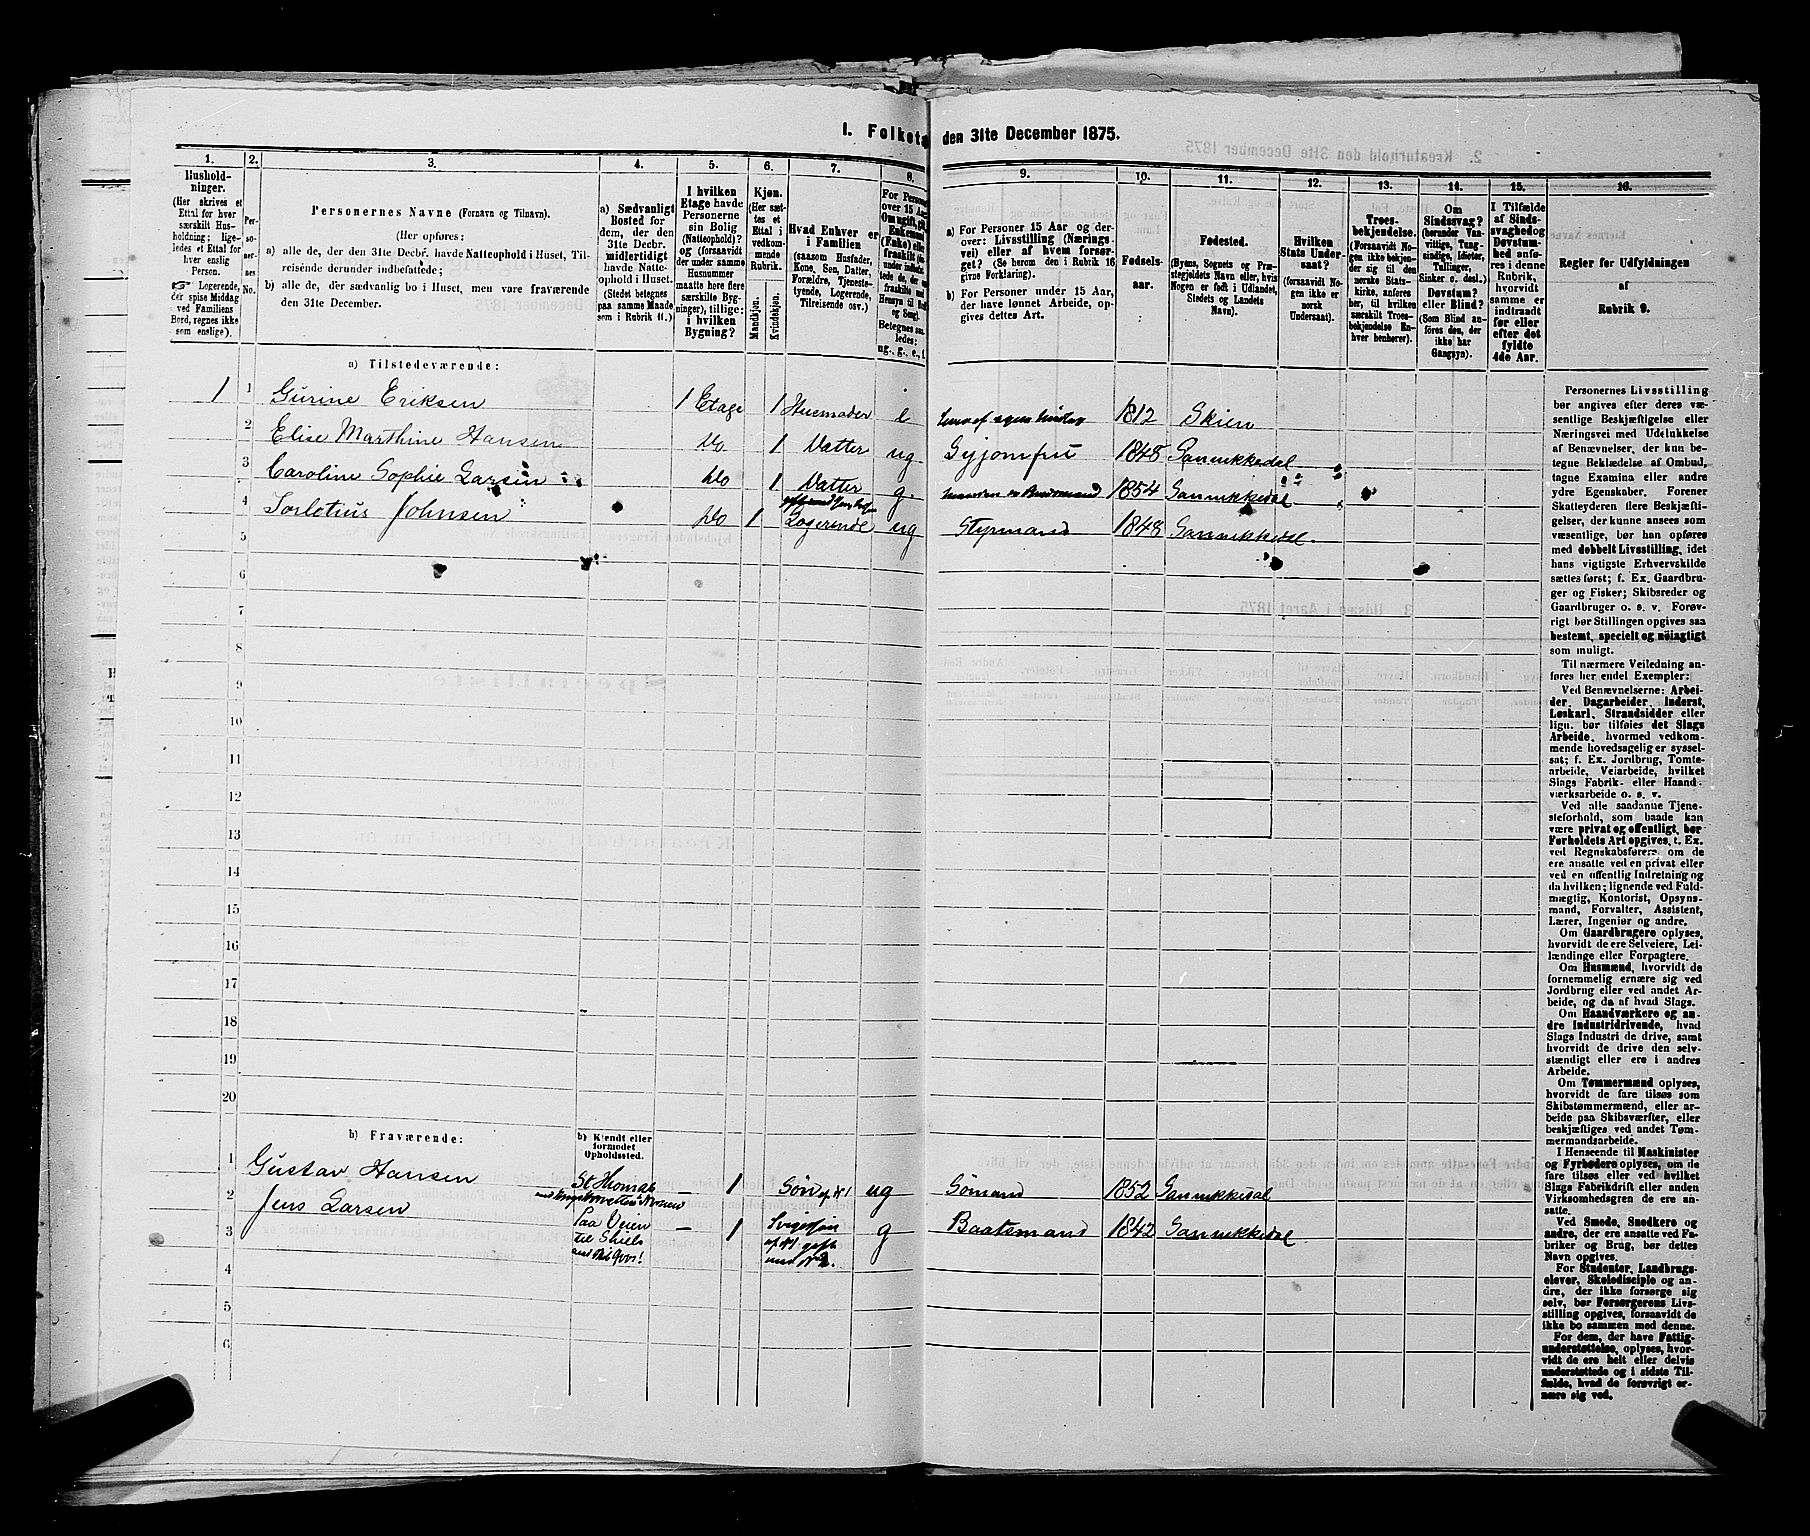 I. Folket
den 31te December 1875.
1.
2.
3.
4.
5.
6.
7.
8.
9.
10.
11.
12.
13.
14.
15.
16.
Hushold-
ninger.
(Her skrives et
Ettal for hver
særskilt Hus-
holdning; lige-
ledes et Ettal for
hver enslig
Person.
☞ Logerende,
der spise Middag
ved Familiens
Bord, regnes ikke
som enslige).
Per-
so-
ner-
nes
No.
Personernes Navne (Fornavn og Tilnavn).
(Her opføres:
a) alle de, der den 31te Decbr. havde Natteophold i Huset, Til-
reisende derunder indbefattede;
b) alle de, der sædvanlig bo i Huset, men vare fraværende
den 31te December.
a) Sædvanligt
Bosted for
dem, der den
31te Decbr.
midlertidigt
havde Natte-
ophold i Huset.
(Stedet betegnes
paa samme Maade
som i Rubrik 11.)
I hvilken
Etage havde
Personerne
sin Bolig
(Natteophold)?
og (forsaavidt
der under samme
Husnummer
maatte høre flere
særskilte Byg-
ninger), tillige:
i hvilken
Bygning?
Kjøn.
(Her sæt-
tes et
Ettal i
vedkom-
mende
Rubrik.
Mandkjøn.
Kvindekjøn.
Hvad Enhver er
i Familien
(saasom Husfader,
Kone, Søn, Datter,
Forældre, Tjeneste-
tyende, Logerende,
Tilreisende osv.)
For Persone
over 15 Aar
Om ugift, gi
Enkemand
(Enke) eller
fraskilt
Betegnes saa-
ledes:
ug., g., e., f.
a) For Personer 15 Aar og der-
over: Livsstilling (Nærings-
vei) eller af hvem forsør-
get? (Se herom den i Rubrik 16
givne Forklaring).
b) For Personer under 15 Aar,
der have lønnet Arbeide, op-
gives dettes Art.
Fødsels-
aar.
Fødested.
(Byens, Sognets og Præ-
stegjeldets Navn eller, hvis
Nogen er født i Udlandet,
Stedets og Landets
Navn).
Hvilken
Stats Under-
saat?
(forsaavidt No-
gen ikke er
norsk
Undersaat).
Troes-
bekjendelse.
(Forsaavidt No-
gen ikke bekjen-
der sig til den
norske Stats-
kirke, anføres
her, til hvilken
særskilt Troes-
bekjendelse En-
hver benhører).
Om
Sindssvag?
(herunder Van-
vittige, Tung-
sindige, Idioter,
Tullinger,
Sinker o. desl.)
Døvstum?
eller Blind?
(Som Blind an-
føres den, der
ikke har
Gangsyn).
I Tilfælde
af Sinds-
svaghed og
Døvstum-
hed anfø-
res i denne
Rubrik,
hvorvidt
samme er
indtraadt
før eller
efter det
fyldte
4de Aar.
Regler for Udfyldningen
af
Rubrik 9.
a) Tilstedeværende:
1 1 Gurine Eriksen 1 Etage 1 Husmoder e 1812 Skien
2 Elise Marthine Hansen Do 1 Datter ug Syjomfru 1848 Sannikkedal
3 Caroline Sophie Larsen Do 1 Datter g. 1854 Sannikkedal
4 Torlotius Johnsen Do 1 Logerende ug Styrmand 1848 Sannikkedal.
5
6
7
8
9
10
11
12
13
14
15
16
17
18
19
20
b) Fraværende:
b) Kjendt eller
formodet
Opholdssted.
1 Gustav Hansen St Thomas — 1 Søn af No 1 ug Sømand 1852 Sannikkedal
2 Jens Larsen
Paa Veien — 1 Svigersøn g Baatsmand 1842 Sannikkedal.
til Shields af No 1 gift
med No 3.
3
4
5
6
Personernes Livsstilling
bør angives efter deres væ-
sentlige Beskjæftigelse eller
Næringsvei med Udelukkelse
af Benævnelser, der kun be-
tegne Beklædelse af Ombud,
tagne Examina eller andre
ydre Egenskaber. Forener
Skatteyderen flere Beskjæfti-
gelser, der kunne ansees som
væsentlige, bør han opføres
med dobbelt Livsstilling, idet
hans vigtigste Erhvervskilde
sættes først; f. Ex. Gaardbru-
ger og Fisker; Skibsreder og
Gaardbruger o. s. v. Forøv-
rigt bør Stillingen opgives saa
bestemt, specielt og nøiagtigt
som muligt.
Til nærmere Veiledning an-
føres her endel Exempler:
Ved Benævnelserne: Arbei-
der, Dagarbeider, Inderst,
Løskarl, Strandsidder eller
lign. bør tilføies det Slags
Arbeide, hvormed vedkom-
mende hovedsagelig er syssel-
sat; f. Ex. Jordbrug, Tomte-
arbeide, Veiarbeide, hvilket
Slags Fabrik- eller Haand-
værksarbeide o. s. v.
Ved alle saadanne Tjene-
steforhold, som baade kan
være privat og offentligt, bør
Forholdets Art opgives, t. Ex.
ved Regnskabsførere, om de
ere ansatte ved en privat eller
ved en offentlig Indretning og
da hvilken; lignende ved Fuld-
mægtig, Kontorist, Opsyns-
mand, Forvalter, Assistent,
Lærer, Ingeniør og andre.
Om Gaardbrugere oplyses,
hvorvidt de ere Selveiere, Lei-
lændinge eller Forpagtere.
Om Husmænd, hvorvidt de
fornemmelig ernære sig ved
Jordbrug eller ved andet Ar-
beide, og da af hvad Slags.
Om Haandværkere og an-
dre Industridrivende, hvad
Slags Industri de drive, samt
hvorvidt de drive den selv-
stændigt eller ere i andres
Arbeide.
Om Tømmermænd oplyses,
hvorvidt de fare tilsøs som
Skibstømmermænd, eller ar-
beide paa Skibsværfter, eller
beskjæftiges ved andet Tøm-
mermandsarbeide.
I Henseende til Maskinister
og Fyrbødere oplyses, om de
fare tilsøs eller ved hvilket
Slags Fabrikdrift eller anden
Virksomhedsgren de ere an-
satte.
Ved Smede, Snedkere og
andre, der ere ansatte ved Fa-
briker og Brug, bør dettes
Navn opgives.
For Studenter, Landbrugs-
elever, Skoledisciple og an-
dre, der ikke forsørge sig
selv, bør Forsørgerens Livs-
stilling opgives, forsaavidt de
ikke bo sammen med denne.
For dem, der have Fattig-
understøttelse, oplyses, hvor-
vidt de ere helt eller delvis
understøttede og i sidste Til-
fælde, hvad de forøvrigt er-
nære sig ved.